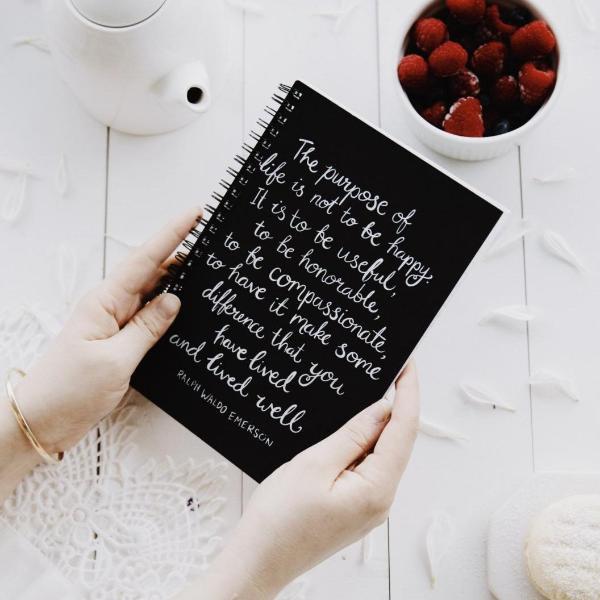 The purpose of
life is not to be happy.
It is to be useful,
to be honorable,
to be compassionate,
to have it make some
difference that you
have lived
and lived well
RALPH WALDO EMERSON